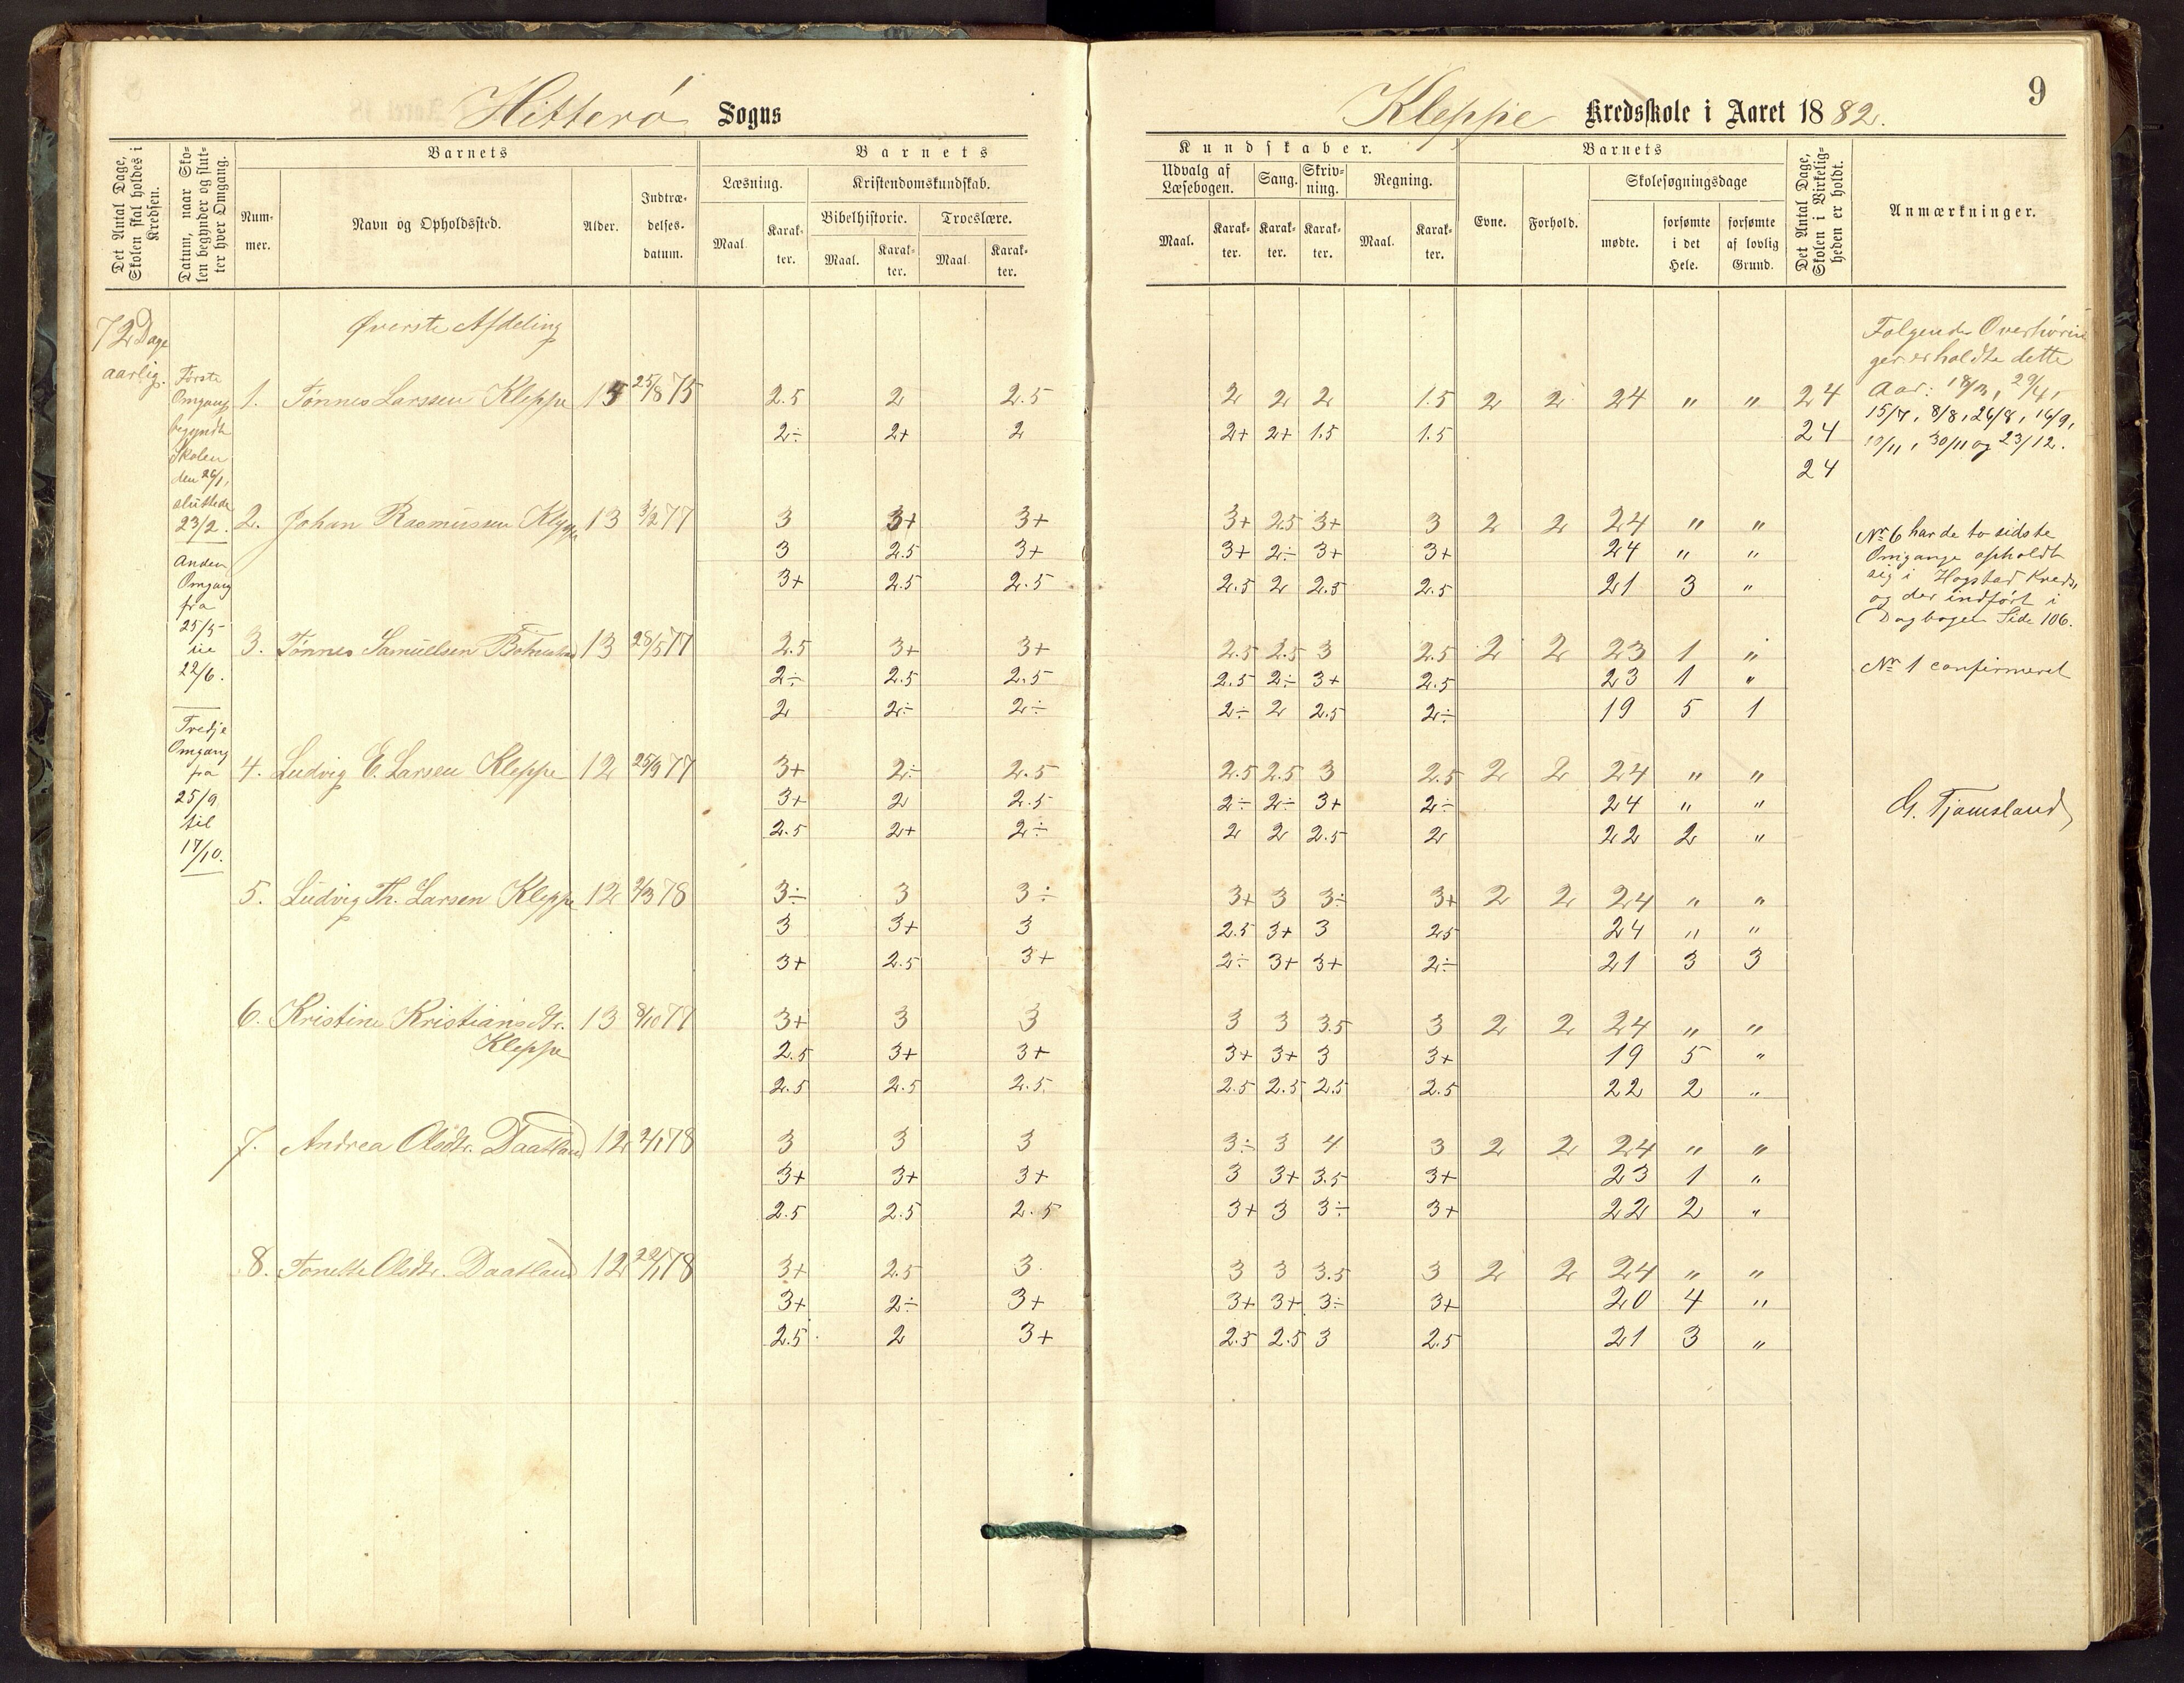 Hitterö Sogns
Kleppe Kredsskole i Aaret 1882.
9
Det Antal Dage, Skolen skal holdes i Kredsen.
Datum, naar Skolen begynder og slutter hver Omgang.
Barnets
Nummer.
Navn og Opholdssted.
Alder.
Indtrædelsesdatum.
Barnets
Læsning.
Maal.
Karakter.
Kristendomskundskab.
Bibelhistorie.
Maal.
Karakter.
Troeslære.
Maal.
Karakter.
Kundskaber.
Udvalg af Læsebogen.
Maal.
Karakter.
Sang.
Karakter.
Skrivning.
Karakter.
Regning.
Maal.
Karakter.
Barnets
Evne.
Forhold.
Skolesøgningsdage
mødte.
forsømte i det Hele.
forsømte af lovlig Grund.
Det Antal Dage, Skolen i Virkeligheden er holdt.
Anmærkninger.
72 Dage
aarlig.
Første
Omgang
begyndte
Skolen
den 26/1,
sluttede
23/2.
Anden
Omgang
fra
25/5
til
22/6.
Tredje
Omgang
fra
25/9
til
17/10.
Øverste Afdeling
1. Tønnes Larssen Kleppe 15 25/8 75 2.5 2 2.5 2 2 2 1.5 2 2 24 " " 24
2÷ 2+ 2 2+ 2+ 1.5 1.5 24
24
2. Johan Rasmussen Kleppe 13 3/2 77 3 3+ 3+ 3+ 2.5 3+ 3 2 2 24 " "
3 2.5 3+ 3+ 2÷ 3+ 3+ 24 " "
3+ 2.5 2.5 2.5 2 2.5 2.5 21 3 "
3. Tønnes Samuelsen 13 28/5 77 2.5 3+ 3+ 2.5 2.5 3 2.5 2 2 23 1 "
2÷ 2.5 2.5 2.5 2÷ 3+ 2.5 23 1 "
2 2÷ 2÷ 2÷ 2 2.5 2÷ 19 5 1
4. Ludvig E. Larsen Kleppe 12 25/9 77 3+ 2÷ 2.5 2.5 2.5 3 2.5 2 2 24 " "
3+ 2 2.5 2÷ 2÷ 3+ 2÷ 24 " "
2.5 2+ 2÷ 2 2 2.5 2 22 2 "
5. Ludvig Th. Larsen Kleppe 12 2/3 78 3÷ 3 3÷ 3+ 3 3÷ 3+ 2 2 24 " "
3 3+ 3 2.5 3+ 3 2.5 24 " "
3+ 2.5 3+ 2÷ 3+ 3+ 2÷ 21 3 3
6. Kristine Kristiansdtr. 13 8/10 77 3+ 3 3 3 3 3.5 3 2 2 24 " "
Kleppe 2.5 3+ 3+ 3+ 3+ 3 3+ 19 5 "
2.5 2.5 2.5 2.5 2.5 2.5 2.5 22 2 "
7. Andrea Olsdtr. Daatland 12 2/1 78 3 3 3 3÷ 3 4 3 2 2 24 " "
3+ 3+ 3+ 3 3+ 3.5 3+ 23 1 "
2.5 2.5 2.5 3+ 3 3÷ 3+ 22 2 "
8. Tonette Olsdtr. Daatland 12 22/1 78 3+ 2.5 3 3 3 3.5 3 2 2 24 " "
3+ 2÷ 3+ 3+ 3+ 3÷ 3+ 20 4 "
2.5 2 3+ 2.5 2.5 3 2.5 21 3 "
Følgende Overhørin
ger er holdte dette
Aar: 18/3, 29/4,
15/7, 8/8, 26/8, 16/9,
19/11, 30/11 og 23/12.
No 6 har de to sidste
Omgange opholdt
sig i Hogstad Kreds,
og der indført i
Dagbogen Side 106.
No 1 confirmeret
G. Tjomsland